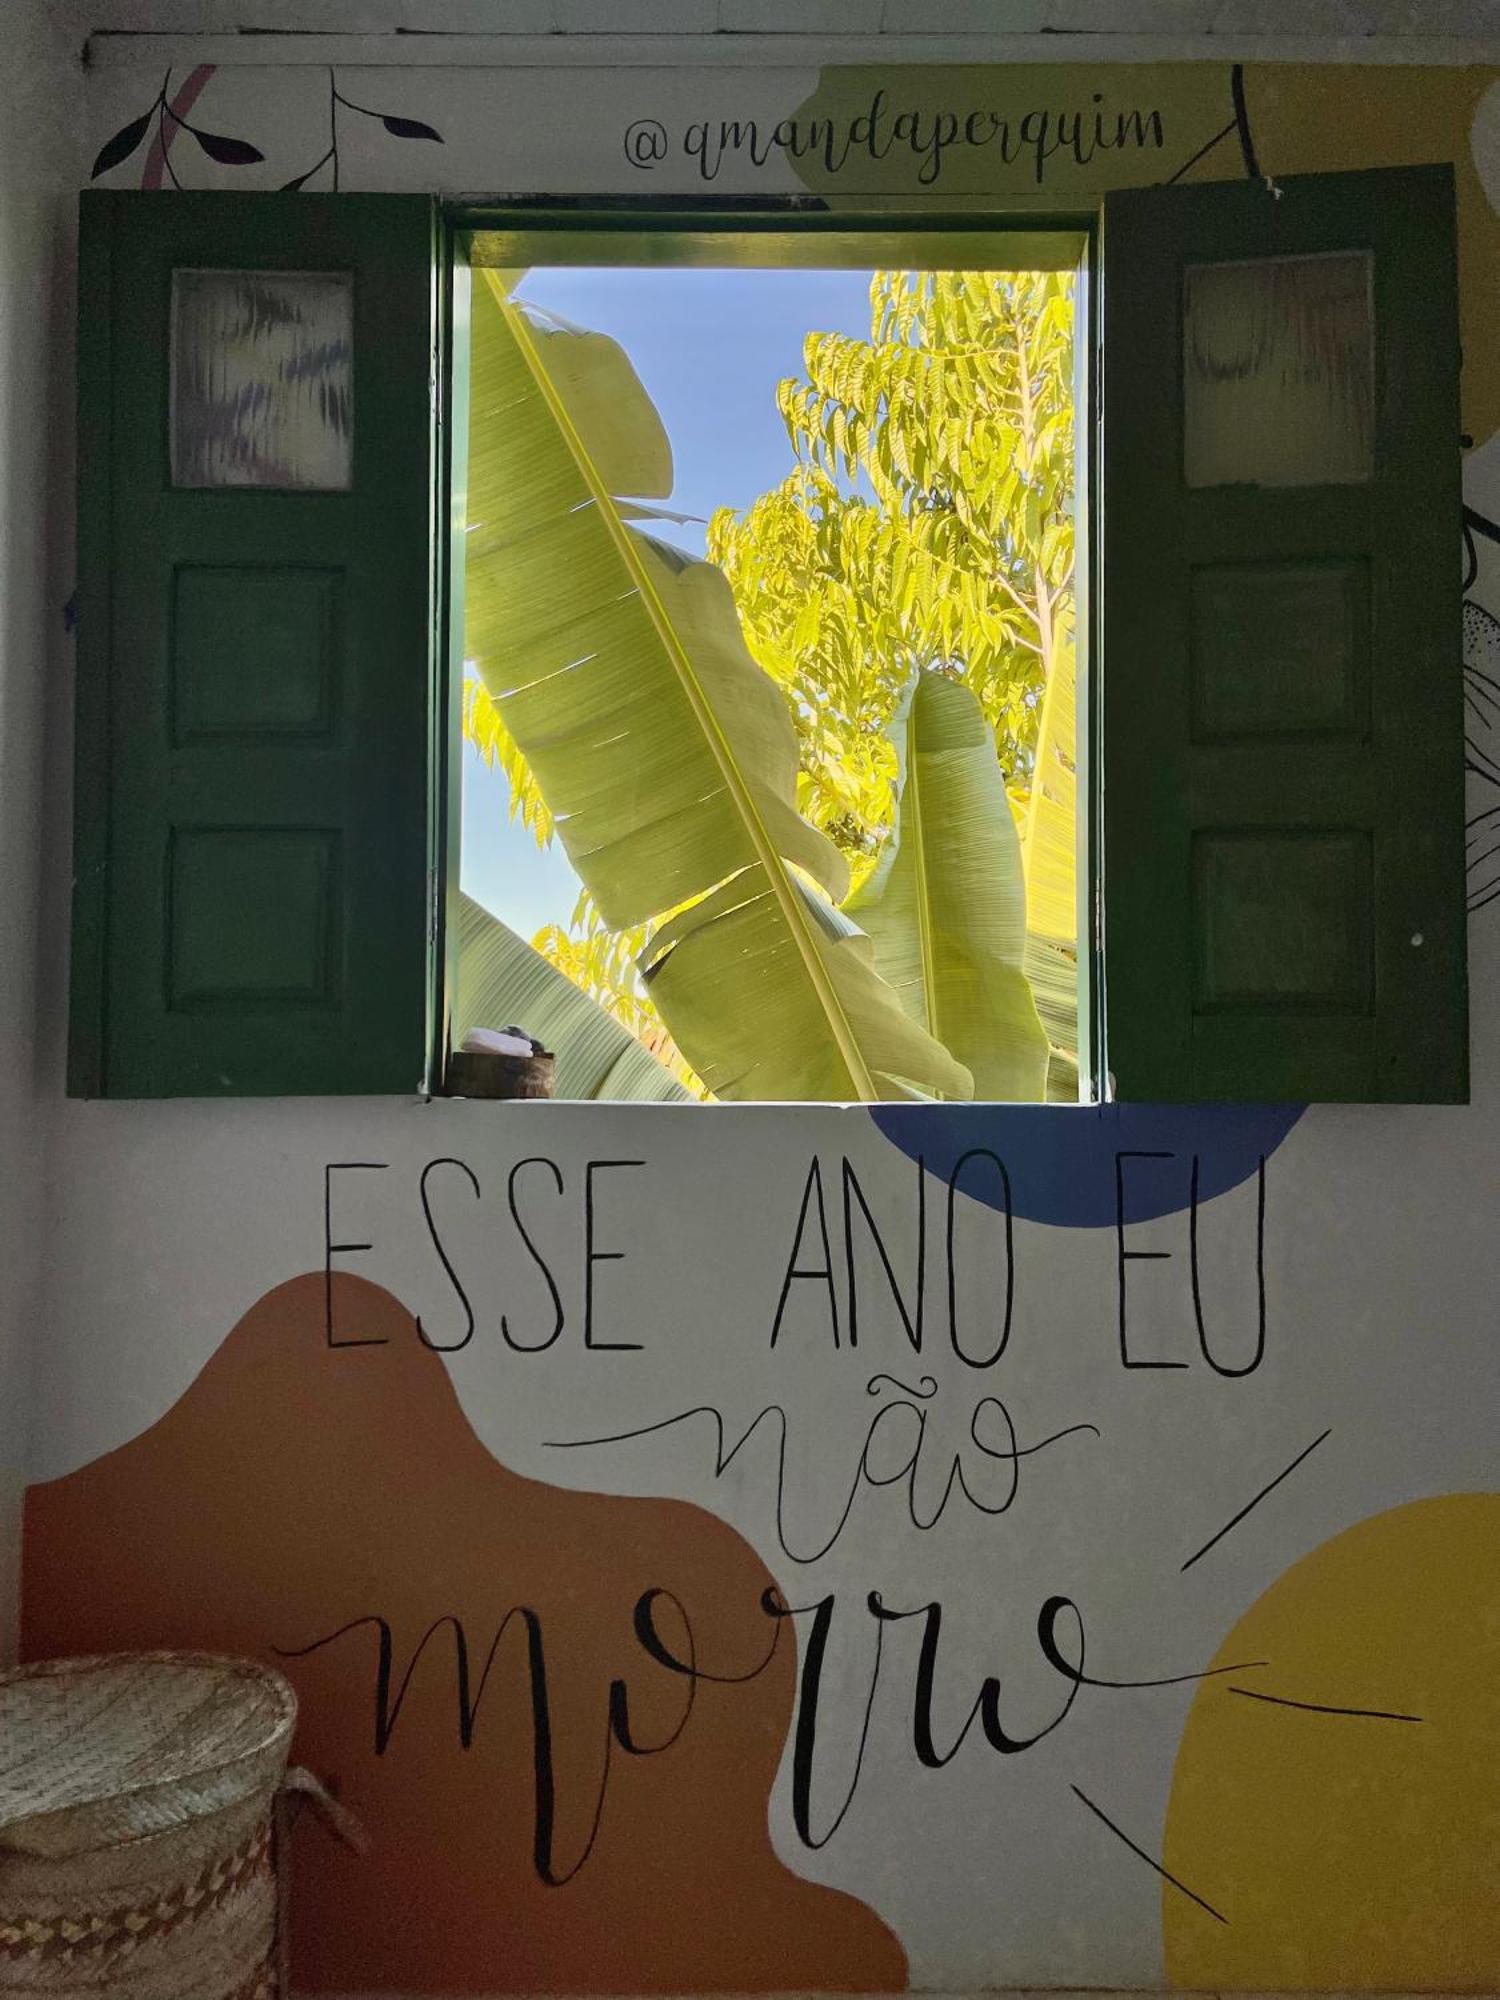 @amandaperquim
ESSE ANO EU
não
morro